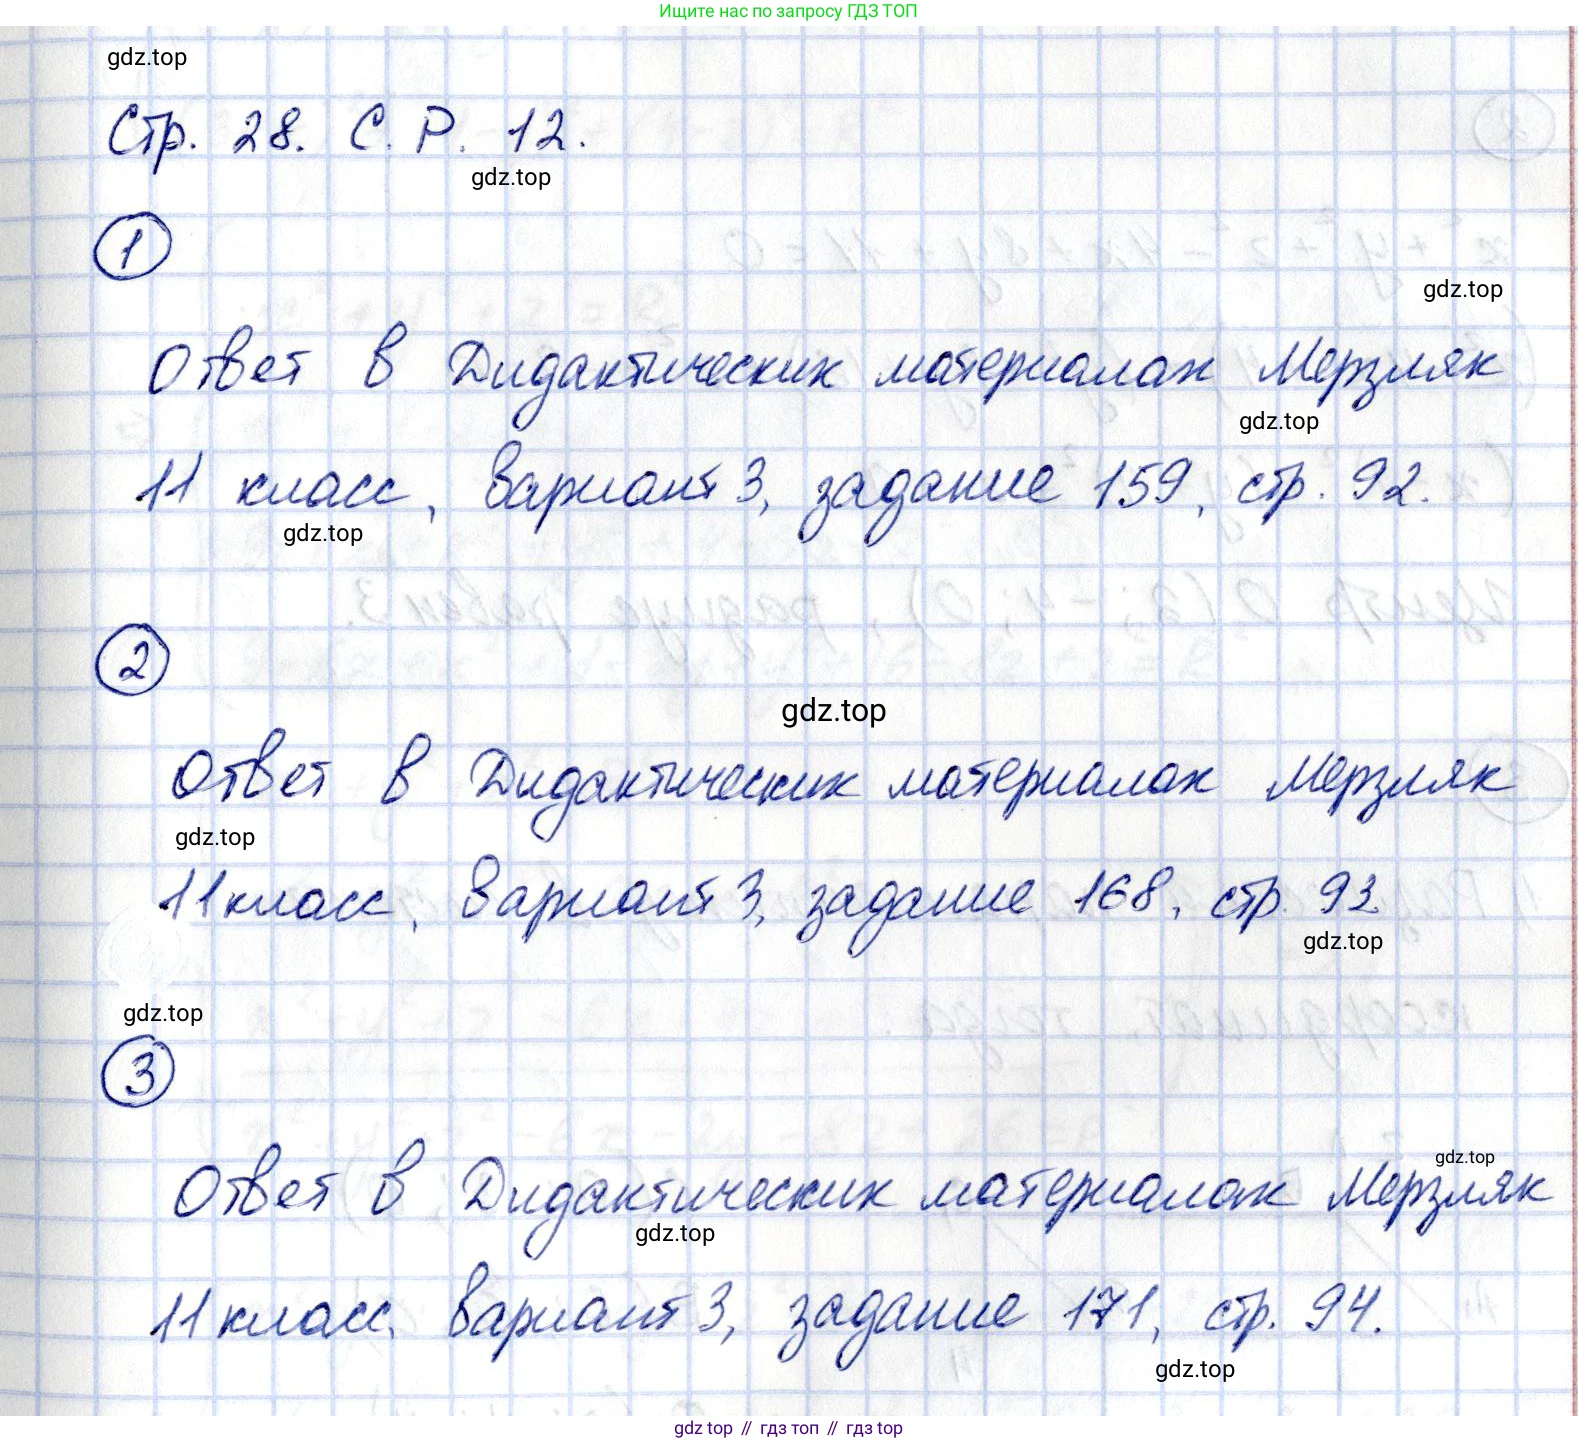 Ищите нас по запросу ГДЗ ТОП
gdz.top
Стр. 28. С. Р. 12.
gdz.top
1
gdz.top
Ответ в Дидактических материалах Мерзляк
gdz.top
11 класс, вариант 3, задание 159, стр. 92.
gdz.top
2
gdz.top
Ответ в Дидактических материалах Мерзляк
gdz.top
11 класс, вариант 3, задание 168, стр. 93.
gdz.top
gdz.top
3
gdz.top
Ответ в Дидактических материалах Мерзляк
gdz.top
11 класс, вариант 3, задание 171, стр. 94.
gdz.top
gdz top // гдз топ // гдз top